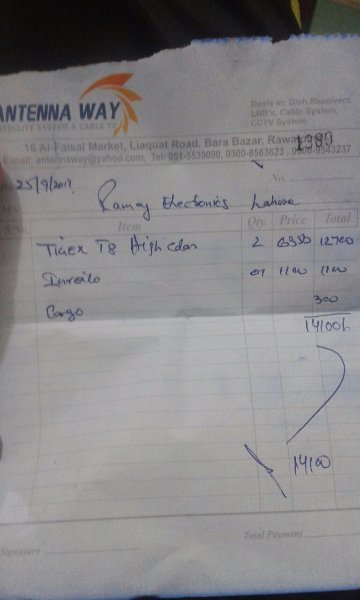 ANTENNA WAY
SATELLITE SYSTEM & CABLE TV
Deals in: Dish, Receivers,
LNB's, Cable System,
CCTV System
16 Al-Faisal Market, Liaquat Road, Bara Bazar,
E-mail: antennaway@yahoo.com, Tel: 051-5539090, 0300-8563623,
1389
25/9/2017
No.
Ramay Electronics Lahore
Item Qty. Price Total
Tiger T8 High 2 6350 12700
01 1100 1100
Cargo 300
14100
14100
Total Payment
Signature